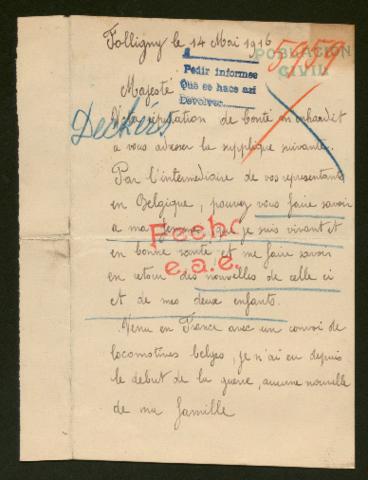 Folligny le 14 Mai 1916
POBLACION
CIVIL
5959
A
Pedir informes
Que se hace así
Devolver
Majesté
Deckers
Votre réputation de bonté m'enhardit
a vous adresser la supplique suivante.
Par l'intermédiaire de vos représentants
en Belgique, pouvez vous faire savoir
a ma femme que je suis vivant et
Fecho
en bonne santé et me faire savoir
e.a.e.
en retour des nouvelles de celle ci
et de mes deux enfants.
Venu en France avec un convoi de
locomotives belges, je n'ai eu depuis
le début de la guerre, aucune nouvelle
de ma famille